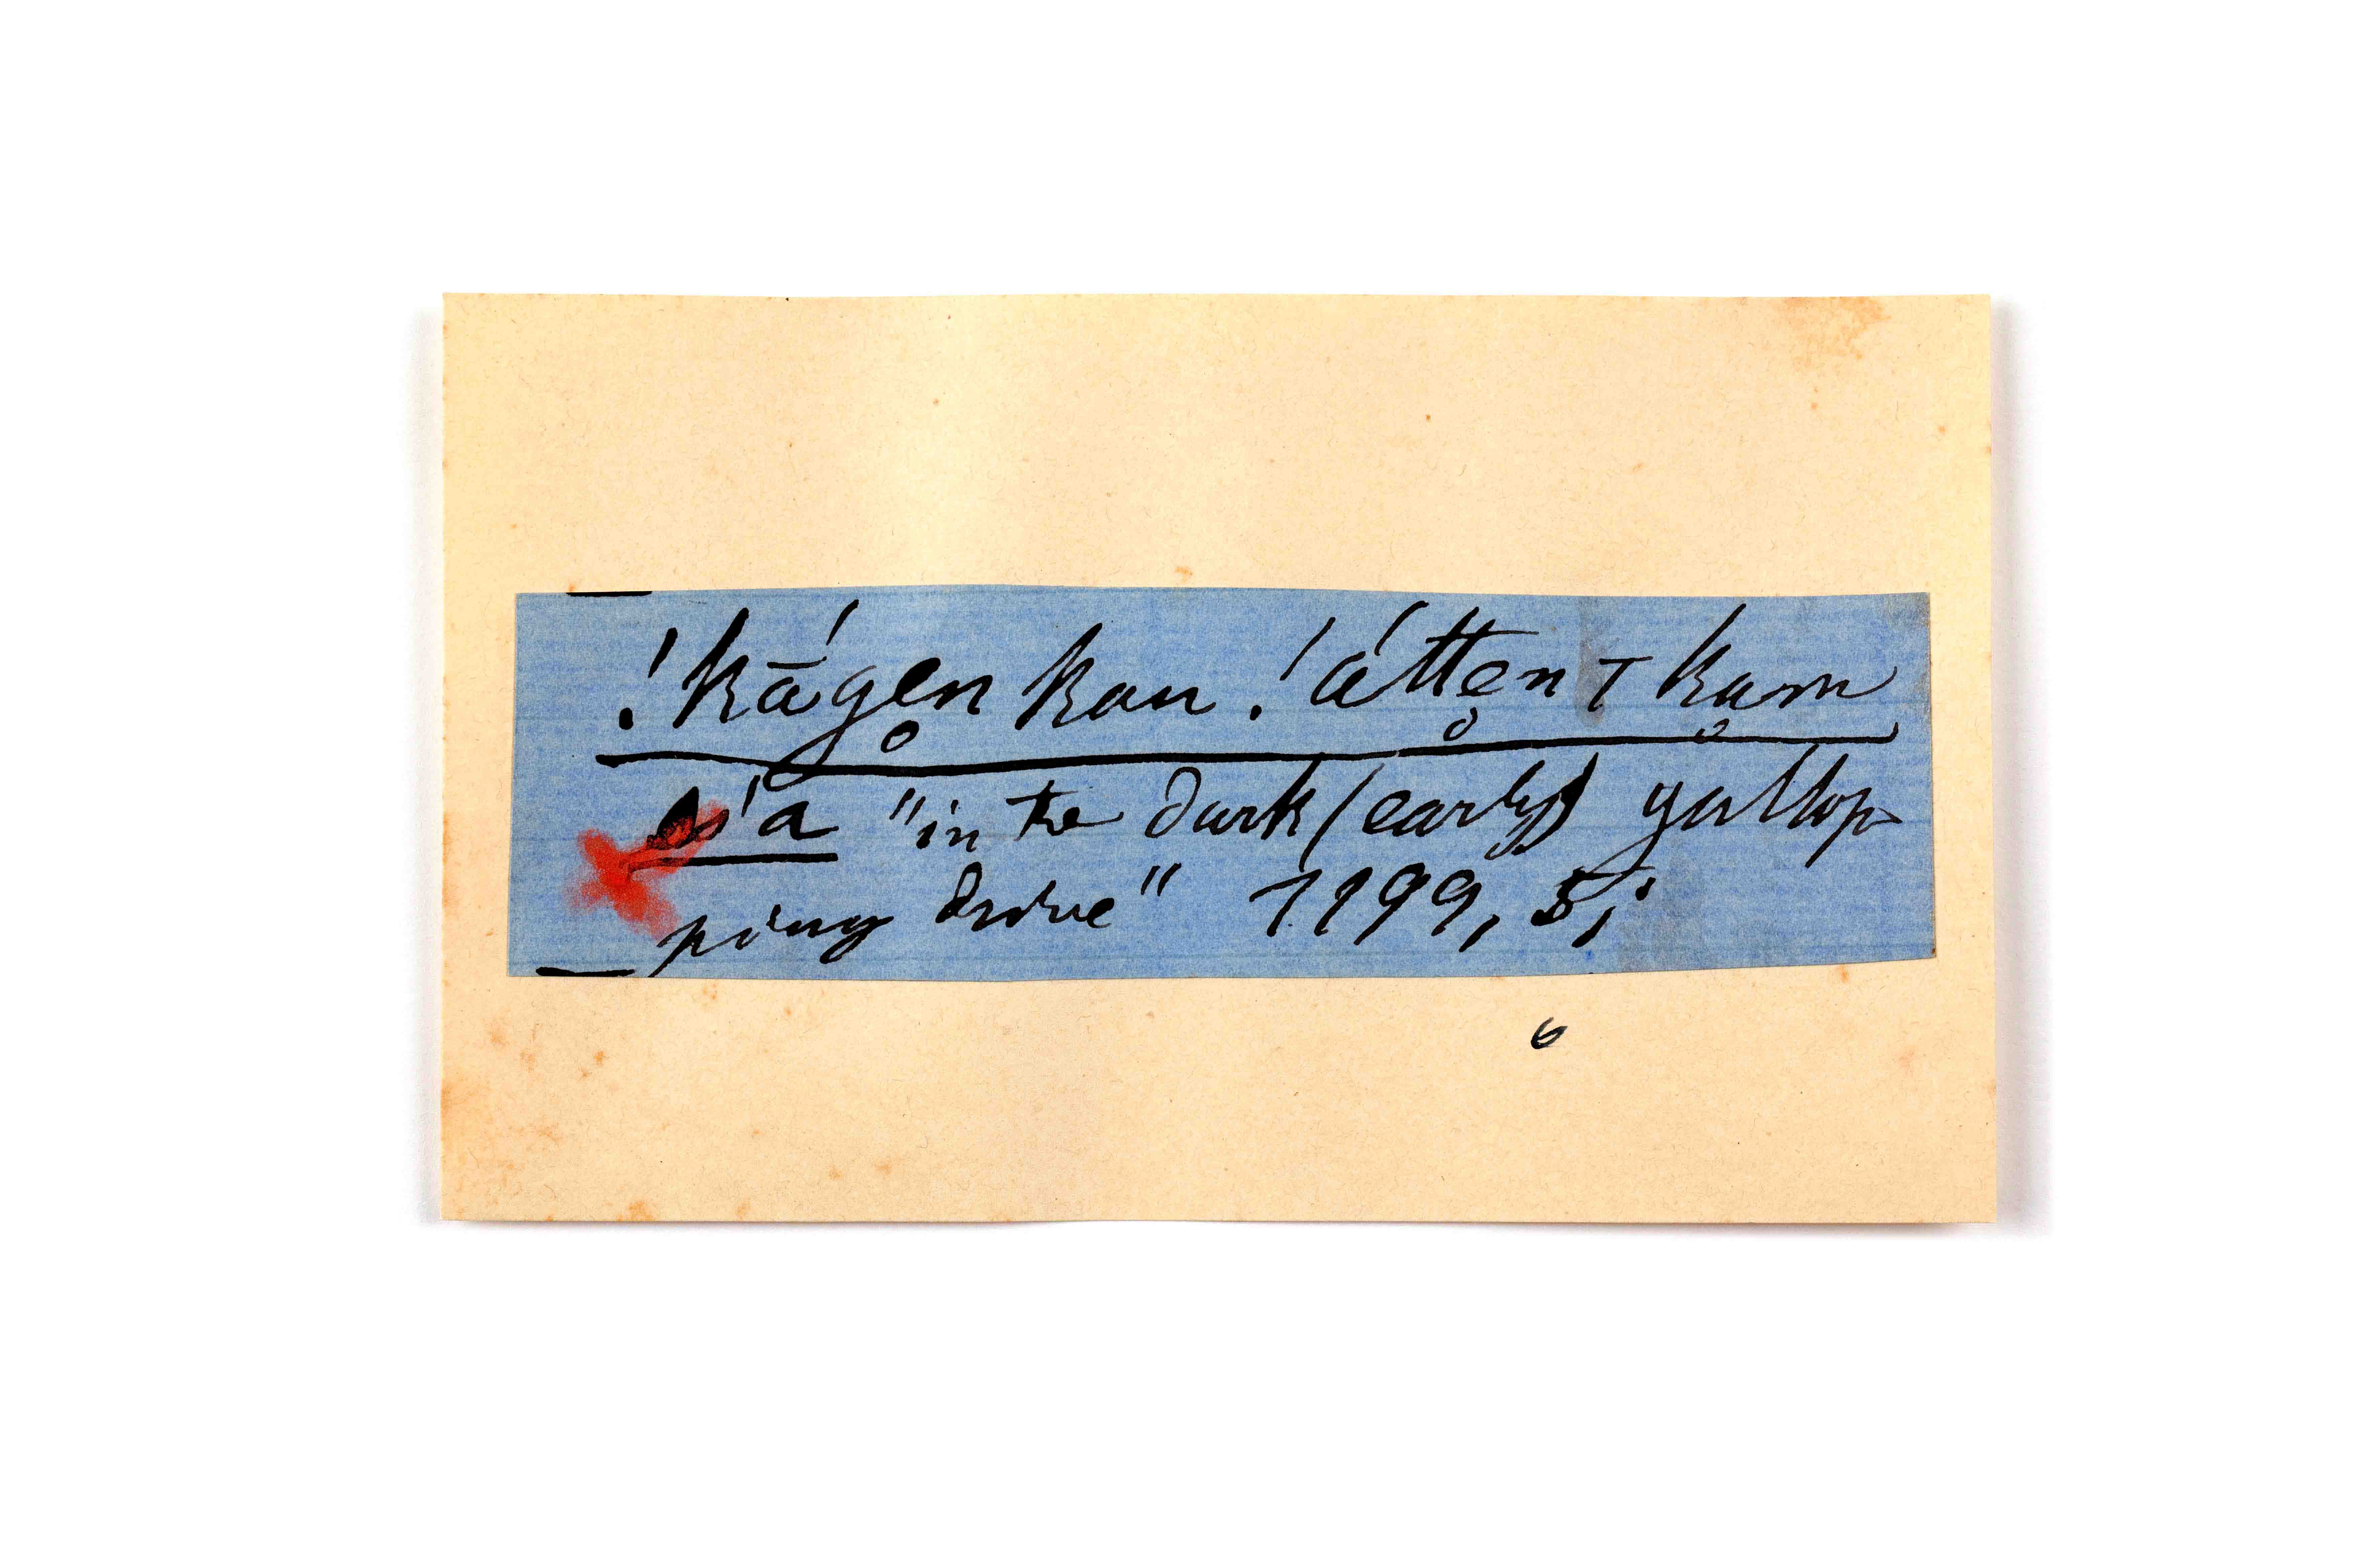 !kā́gen̥ kau !áttẹn̥ τ kạm̥
s'a "in the dark (early) gallop-
ping drive" 1199, 5;
6